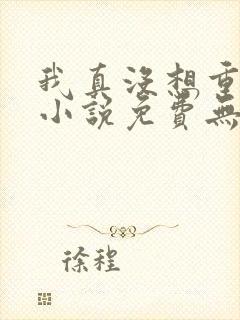 我真沒想重
小說免費無
徐程